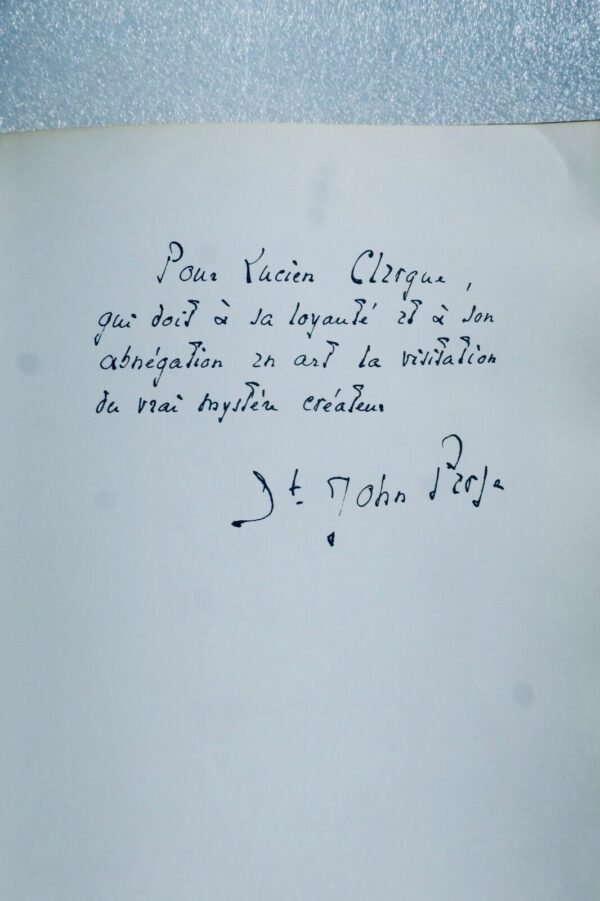 Pour Lucien Clergue,
qui doit à sa loyauté et à son
abnégation en art la visitation
du vrai mystère créateur
St. John Perse